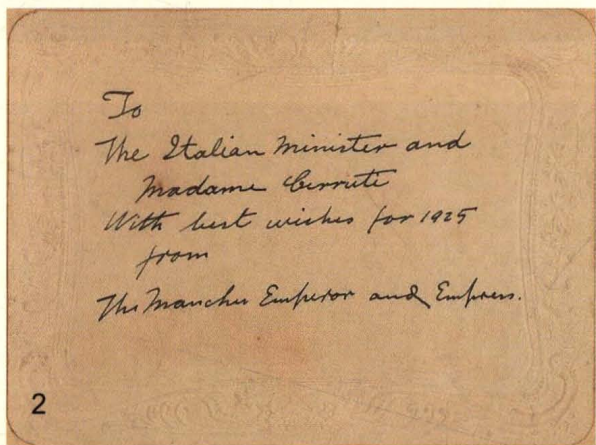 To
The Italian Minister and
Madame Cerruti
With best wishes for 1925
from
The Manchu Emperor and Empress.
2